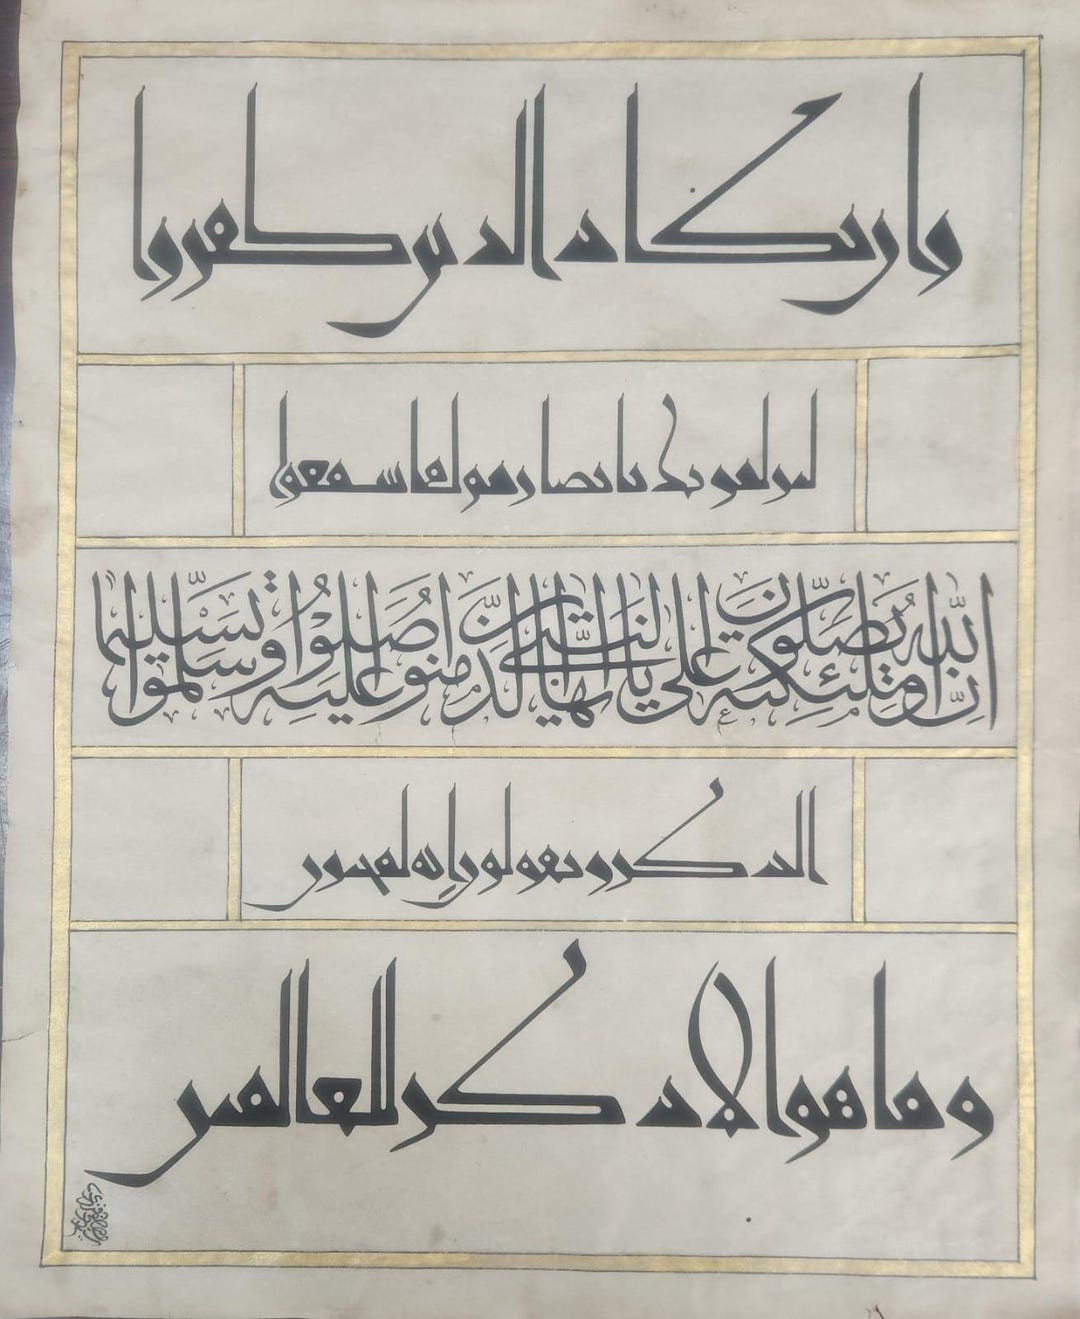 وان يكاد الذين كفروا
ليزلقونك بابصارهم لما سمعوا
ان الله وملئكته يصلون على النبى يا ايها الذين امنوا صلوا عليه وسلموا تسليما
الذكر ويقولون انه لمجنون
وما هو الا ذكر للعالمين